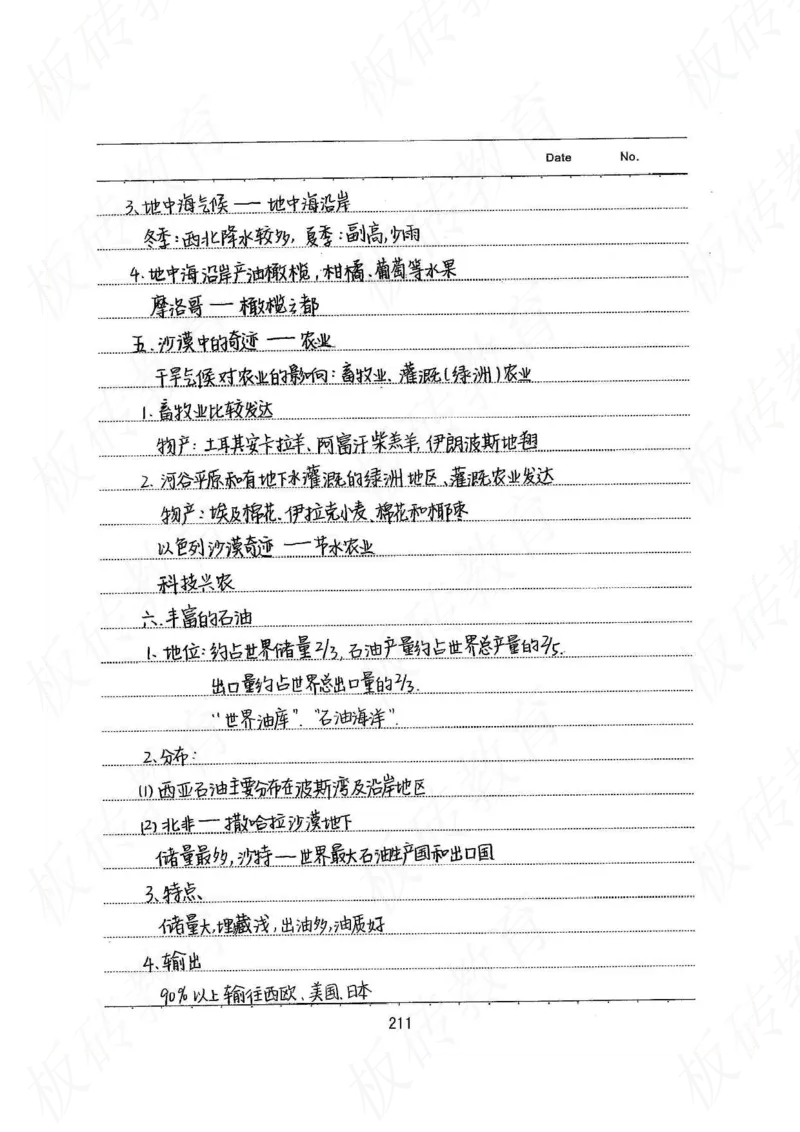 Date No.
3.地中海气候 — 地中海沿岸
冬季:西北降水较多, 夏季:副高,少雨
4.地中海沿岸产油橄榄,柑橘、葡萄等水果
摩洛哥 — 橄榄之都
五.沙漠中的奇迹 — 农业
干旱气候对农业的影响:畜牧业、灌溉(绿洲)农业
1.畜牧业比较发达
物产:土耳其安卡拉羊、阿富汗柴羔羊,伊朗波斯地翔
2.河谷平原和有地下水灌溉的绿洲地区、灌溉农业发达
物产:埃及棉花、伊拉克小麦、棉花和椰枣
以色列沙漠奇迹 — 节水农业
科技兴农
六.丰富的石油
1、地位:约占世界储量2/3,石油产量约占世界总产量的2/5.
出口量约占世界总出口量的2/3.
“世界油库”.“石油海洋”.
2、分布:
(1)西亚石油主要分布在波斯湾及沿岸地区
(2)北非 — 撒哈拉沙漠地下
储量最多,沙特 — 世界最大石油生产国和出口国
3、特点、
储量大,埋藏浅,出油多,油质好
4、输出
90%以上输往西欧、美国、日本
211
板砖教育